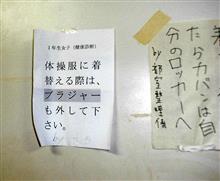 1年生女子（健康診断）
体操服に着
替える際は、
ブラジャー
も外して下
さい。
たらカバンは自
分のロッカーへ
by